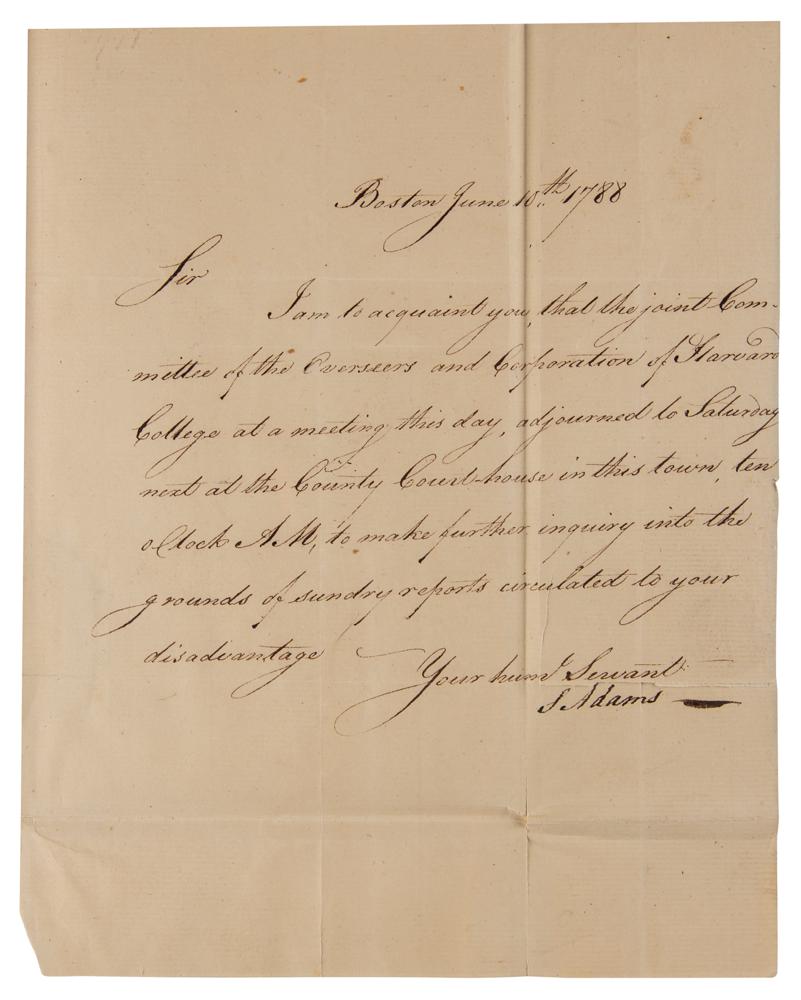 Boston June 10.th 1788
Sir
I am to acquaint you, that the joint Com-
mittee of the Overseers and Corporation of Harvard
College at a meeting this day, adjourned to Saturday
next at the County Court-house in this town, ten
oClock AM, to make further inquiry into the
grounds of sundry reports circulated to your
disadvantage
Your huml Servant
S Adams